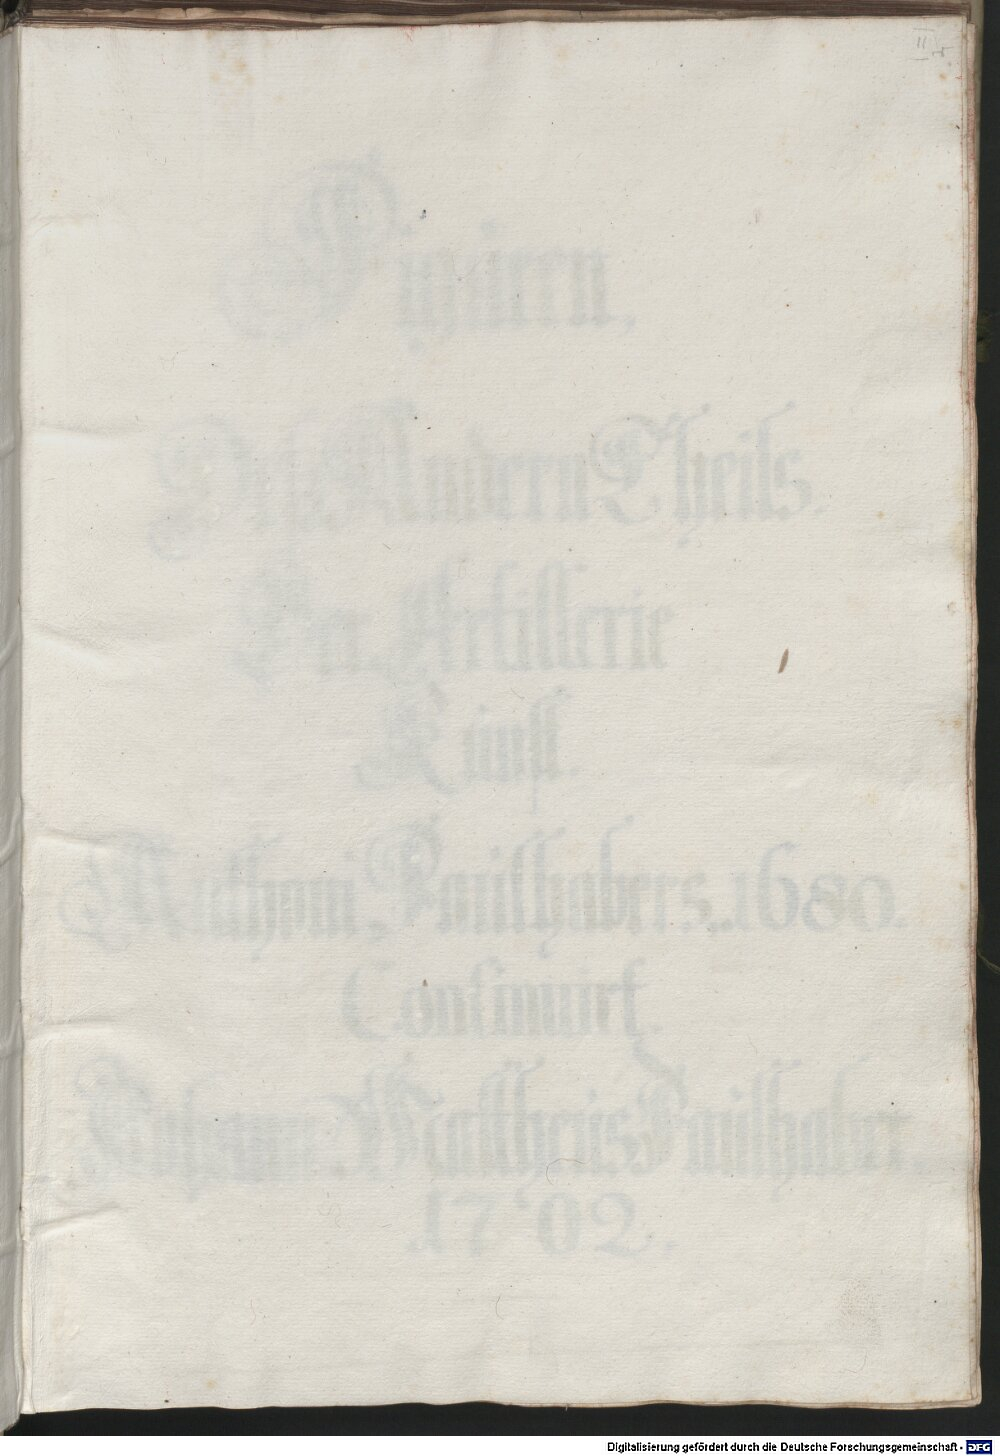 IIr
Figuren,
Deß Andern Theils.
Der Artillerie
Kunst.
Matthaei, Faulhabers. 1680.
Continuirt.
Johann: Mattheüs Faulhaber.
1702.
Digitalisierung gefördert durch die Deutsche Forschungsgemeinschaft - DFG